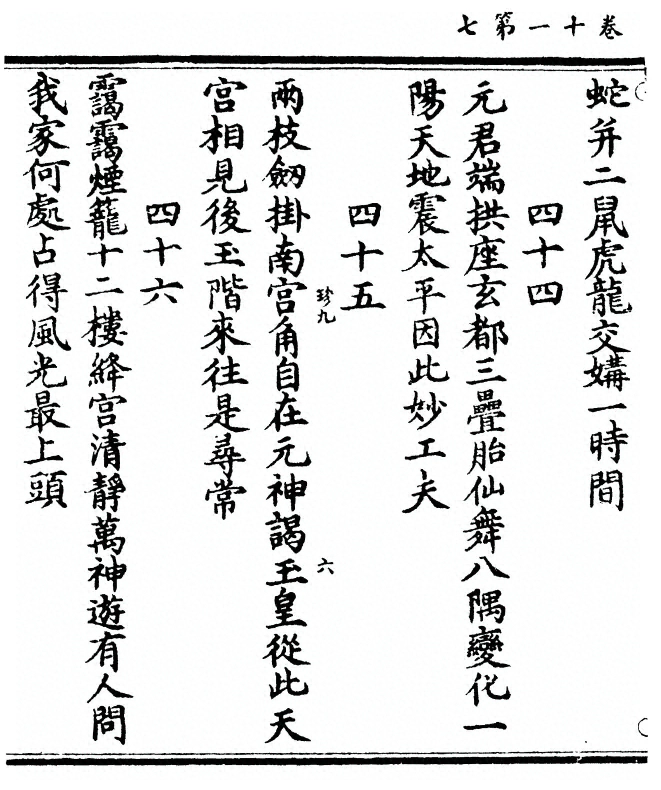 卷十一第七
蛇并二鼠虎龍交媾一時間
四十四
元君端拱座玄都三疊胎仙舞八隅變化一
陽天地震太平因此妙工夫
四十五
珍九
六
兩枝劒掛南宮角自在元神謁玉皇從此天
宮相見後玉階來往是尋常
四十六
靄靄煙籠十二樓絳宮清靜萬神遊有人問
我家何處占得風光最上頭